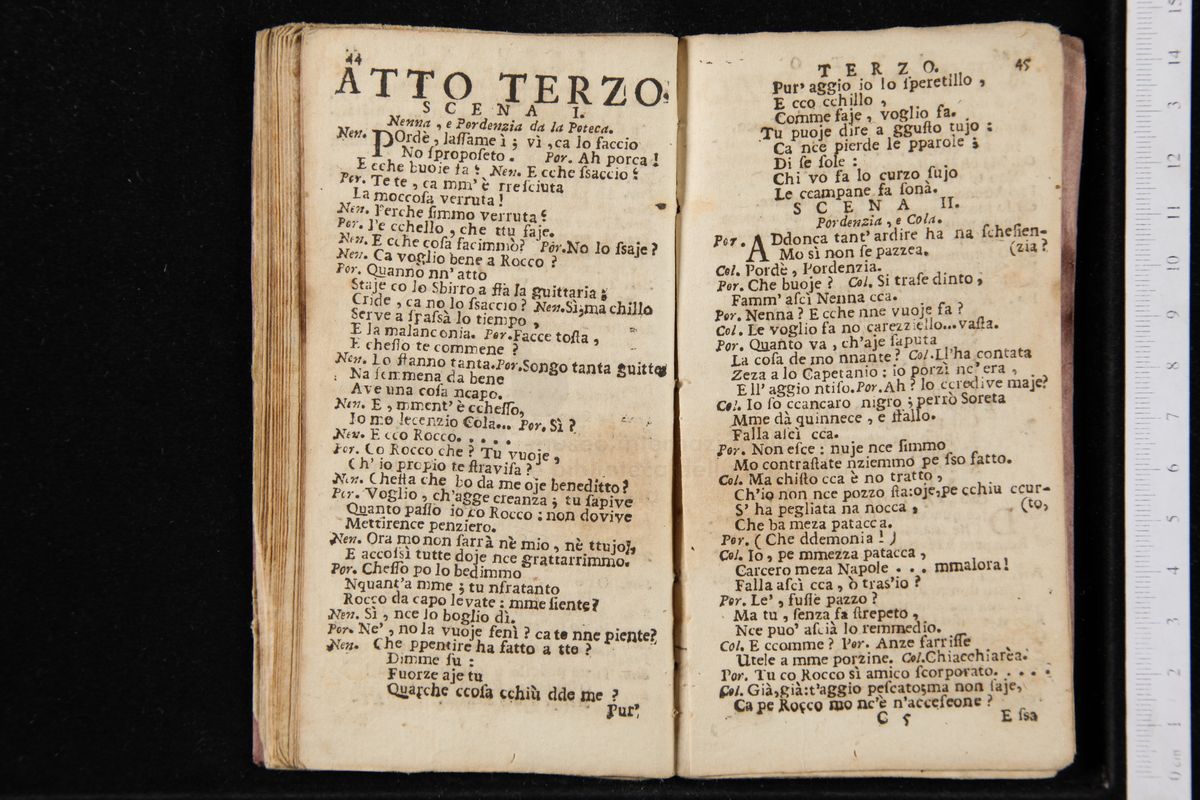 44
ATTO TERZO.
SCENA I.
Nenna, e Pordenzia da la Poteca.
Nen. POrdè, laſſame ì; vì, ca lo faccio
No ſpropoſeto. Por. Ah porca!
E cche buoie fa? Nen. E cche ſaccio?
Por. Te te, ca mm'è rreſciuta
La moccoſa verruta!
Nen. Perche ſimmo verruta?
Por. Pe cchello, che ttu ſaje.
Nen. E cche coſa facimmò? Por. No lo ſsaje?
Nen. Ca voglio bene a Rocco?
Por. Quanno nn'atto
Staje co lo Sbirro a ffa la guittaria;
Cride, ca no lo ſsaccio? Nen. Sì; ma chillo
Serve a ſraſsà lo tiempo,
E la malanconia. Por. Facce toſta,
E cheſſo te commene?
Nen. Lo ſtanno tanta. Por. Songo tanta guitte
Na femmena da bene
Ave una coſa ncapo.
Nen. E, mment'è ccheſſo,
Io mo lecenzio Cola... Por. Sì?
Nen. E cco Rocco.....
Por. Co Rocco che? Tu vuoje,
Ch'io propio te ſtraviſa?
Nen. Cheſta che bo da me oje beneditto?
Por. Voglio, ch'agge creanza; tu ſapive
Quanto paſſo io co Rocco: non dovive
Mettirence penziero.
Nen. Ora mo non ſarrà nè mio, nè ttujo,
E accoſsì tutte doje nce grattarrimmo.
Por. Cheſſo po lo bedimmo
Nquant'a mme; tu nfratanto
Rocco da capo levate: mme ſiente?
Nen. Sì, nce lo boglio dì.
Por. Ne', no la vuoje fenì? ca te nne piente?
Nen. Che ppentire ha fatto a tto?
Dimme ſu:
Fuorze aje tu
Quarche ccoſa cchiù dde me?
Pur'
TERZO. 45
Pur' aggio io lo ſperetillo,
E cco cchillo,
Comme ſaje, voglio fa.
Tu puoje dire a gguſto tujo:
Ca nce pierde le pparole;
Di ſe ſole:
Chi vo fa lo curzo ſujo
Le ccampane fa ſonà.
SCENA II.
Pordenzia, e Cola.
Por. ADdonca tant' ardire ha na ſcheſien-
Mo sì non ſe pazzea. (zia?
Col. Pordè, Pordenzia.
Por. Che buoje? Col. Si traſe dinto,
Famm' aſcì Nenna cca.
Por. Nenna? E cche nne vuoje fa?
Col. Le voglio fa no carezziello... vaſta.
Por. Quanto va, ch'aje ſaputa
La coſa de mo nnante? Col. Ll'ha contata
Zeza a lo Capetanio: io porzì nc'era,
E ll' aggio ntiſo. Por. Ah? lo ccredive maje?
Col. Io ſo ccancaro nigro; perrò Soreta
Mme dà quinnece, e ffallo.
Falla aſcì cca.
Por. Non eſce: nuje nce ſimmo
Mo contraſtate nziemmo pe ſso fatto.
Col. Ma chiſto cca è no tratto,
Ch'io non nce pozzo ſta: oje, pe cchiu ccur-
S' ha pegliata na nocca, (to,
Che ba meza patacca.
Por. (Che ddemonia!)
Col. Io, pe mmezza patacca,
Carcero meza Napole... mmalora!
Falla aſcì cca, ò tras'io?
Por. Le', fuſſe pazzo?
Ma tu, ſenza fa ſtrepeto,
Nce puo' aſcià lo remmedio.
Col. E ccomme? Por. Anze ſarriſſe
Utele a mme porzine. Col. Chiacchiarèa.
Por. Tu co Rocco sì amico ſcorporato.....
Col. Già, già: t'aggio peſcato; ma non ſaje,
Ca pe Rocco mo nc'è n'acceſeone?
C 5 E ſsa